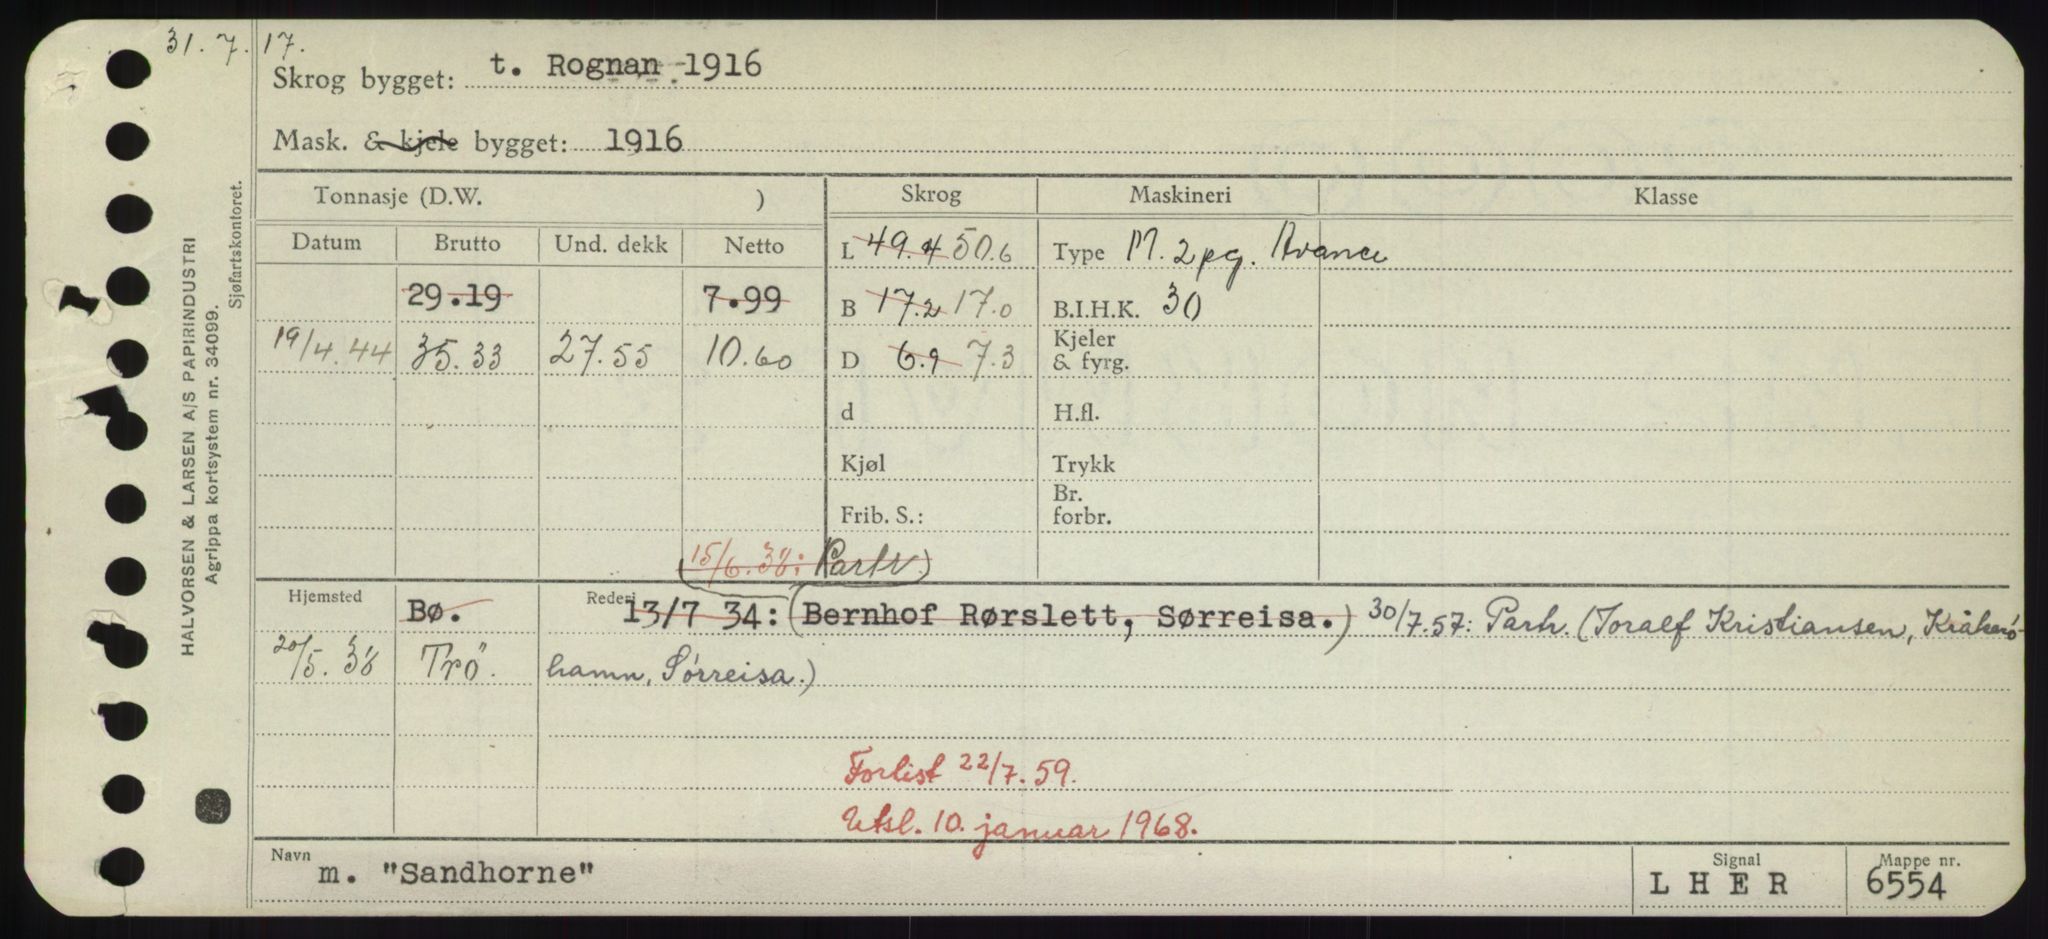 31.7.17.
Skrog bygget: t. Rognan 1916
Mask. & kjele bygget: 1916
Tonnasje (D.W. ) Skrog Maskineri Klasse
Datum Brutto Und. dekk Netto L 49.4 50.6 Type M. 2 pg. Avance
29.19 7.99 B 17.2 17.0 B.I.H.K. 30
19/4.44 35.33 27.55 10.60 D 6.9 7.3 Kjeler & fyrg.
d H.fl.
Kjøl Trykk
Frib. S.: Br. forbr.
(15/6.38: Partr.)
Hjemsted Bø. Rederi 13/7 34: (Bernhof Rørslett, Sørreisa.) 30/7.57: Parh. (Toralf Kristiansen, Kråkerö-
20/5.38 Trö. hamn, Sörreisa.)
Forlist 22/7.59.
Utsl. 10. januar 1968.
Navn m. "Sandhorne" Signal LHER Mappe nr. 6554
HALVORSEN & LARSEN A/S PAPIRINDUSTRI
Agrippa kortsystem nr. 34099.
Sjøfartskontoret.